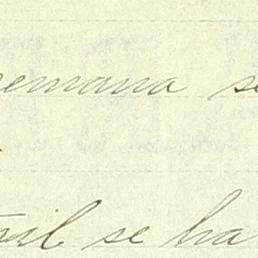 semana se
se ha